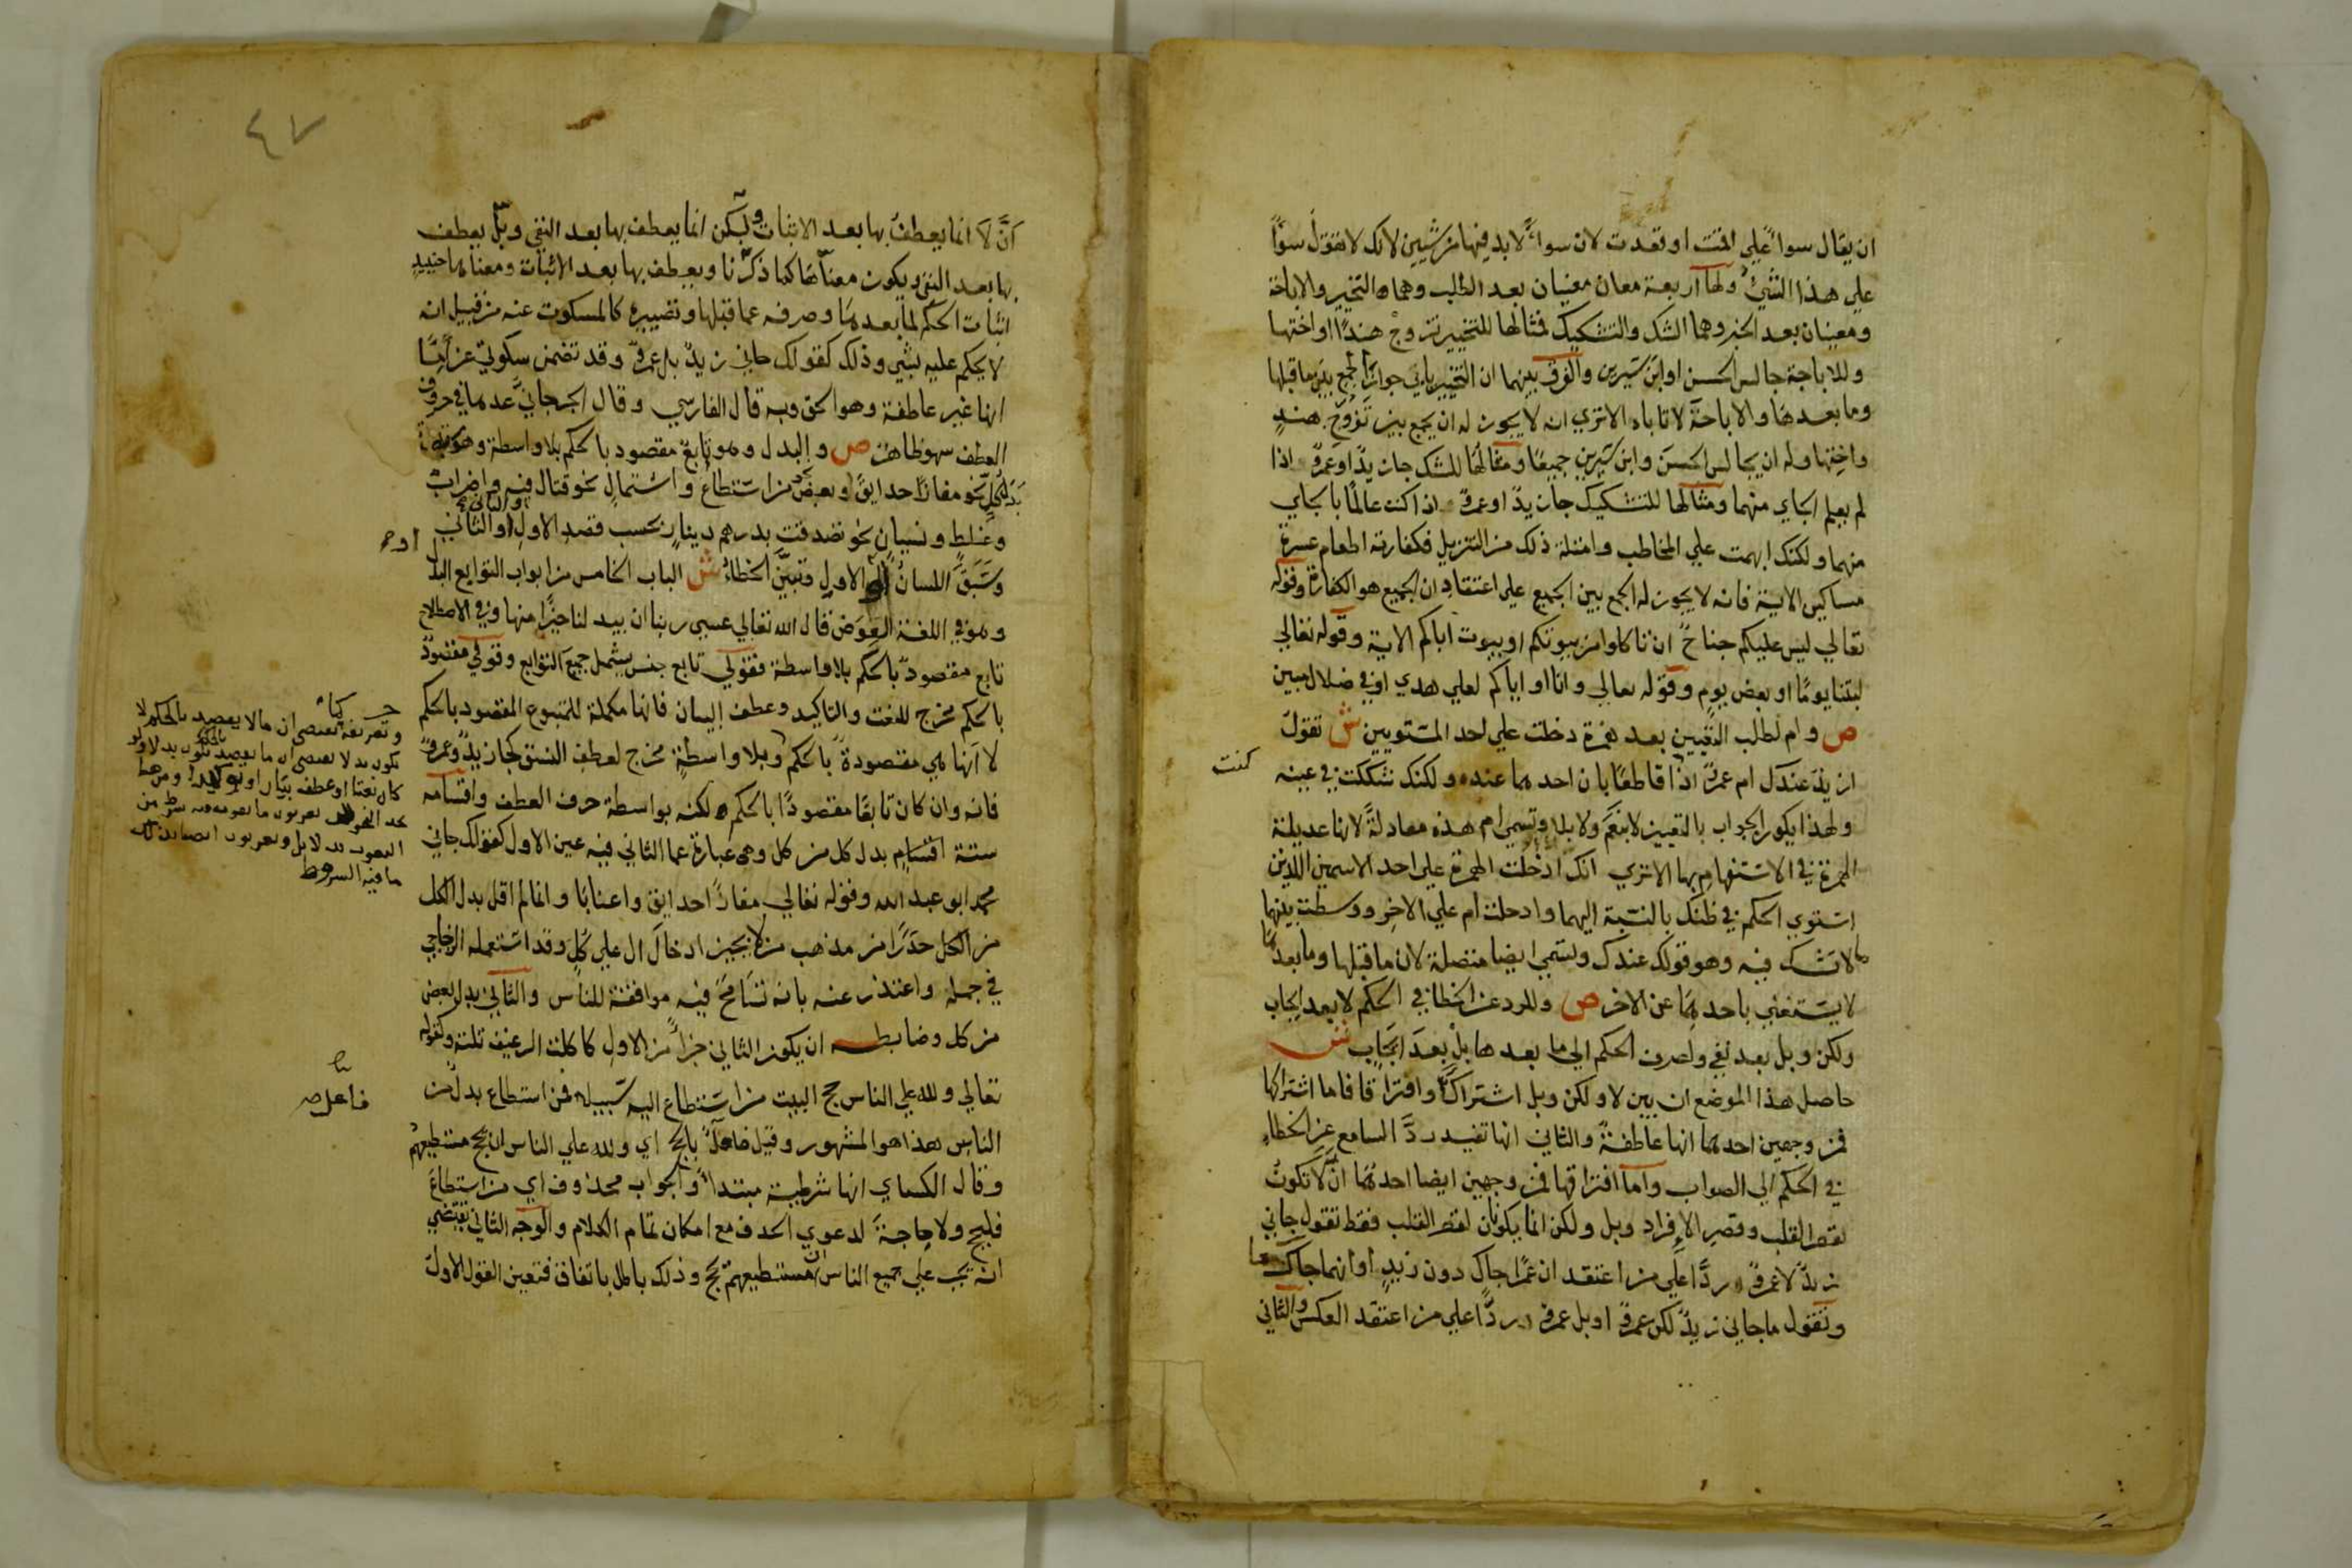 ان يقال سواءً علي اقمت او قعدت لان سواءً لا بد فيها من شيين لانك لا تقول سواً
علي هذا الشيُ ولها اربعة معان معنيان بعد الطلب وهما التخيير والاباحة
ومعنيان بعد الخبر وهما الشك والتشكيك فمثالها للتخيير تزوجْ هندًا او اختها
وللاباحة جالس الحسن او ابنَ سيرين والفرق بينهما ان التخيير يابي جوازَ الجمع بين ما قبلها
وما بعدها والاباحةَ لا تاباه الا تري انه لا يجوز له ان يجمع بين تَزَوُّجِ هندٍ
واختِها وله ان يجالس الحسنَ وابن سيرين جميعًا ومثالُها للشك جا زيدٌ او عمرٌو اذا
لم يعلم الجاي منهما ومثالها للتشكيك جا زيدٌ او عمرٌو اذا كنت عالمًا بالجاي
منهما ولكنك ابهمت علي المخاطب وامثلة ذلك من التنزيل فكفارته اطعام عشرة
مساكين الاية فانه لا يجوز له الجمع بين الجميع علي اعتقاد ان الجميع هو الكفارة وقوله
تعالي ليس عليكم جناحٌ ان تاكلوا من بيوتكم او بيوت اباكم الاية وقوله تعالي
لبثنا يومًا او بعض يوم وقوله تعالي وانا او اياكم لعلي هدي او في ضلال مبين
ص وام لطلب التعيين بعد همزة دخلت علي احد المستويين ش تقول
ازيدٌ عندك ام عمرٌو اذا قاطعًا بان احدهما عنده ولكنك شككت في عينه
كنت
ولهذا يكون الجواب بالتعيين لا بنعَم ولا بلا وتسمي ام هذه معادلةً لانها عديلة
الهمزة في الاستفهام بها الا تري انك ادخلت الهمزة علي احد الاسمين اللذين
استوي الحكم في ظنك بالنسبة اليهما وادخلت ام علي الاخر ووسطت بينهما
ما لا تشك فيه وهو قولك عندك وتسمي ايضا متصلة لان ما قبلها وما بعدها
لا يستغني باحدهما عن الاخر ص وللرد عن الخطا في الحكم لا بعد ايجاب
ولكن وبل بعد نفي ولصرف الحكم الي ما بعدها بلْ بعدَ ايجاب ش
حاصل هذا الموضع ان بين لا ولكن وبل اشتراكًا وافتراقا فاما اشتراكها
فمن وجهين احدهما انها عاطفةٌ والثاني انها تفيد ردَّ السامع عن الخطاءِ
في الحكم الي الصواب واما افتراقها فمن وجهين ايضا احدهما انَّ لا تكونُ
لقصر القلب وقصر الافراد وبل ولكن انما يكونان لقصر القلب فقط تقول جاني
زيدٌ لا عمرٌو ردًّا علي من اعتقد ان عمرًا جاك دون زيدٍ او انهما جاك معا
وتقول ما جاني زيدٌ لكن عمرٌو او بل عمرٌو ردًّا علي من اعتقد العكس والثاني
٤٧
انَّ لا انما يعطفُ بها بعد الاثبات ولكن انما يعطف بها بعد النفي وبل يعطف
بها بعد النفي ويكون معناها كما ذكرنا ويعطف بها بعد الاثبات ومعناها حينيذٍ
اثبات الحكم لما بعدها وصرفه عما قبلها وتصييره كالمسكوت عنه من قبيل انه
لا يحكم عليه بشي وذلك كقولك جاني زيدٌ بل عمرٌو وقد تضمن سكوتي عن إمَّا
انها غير عاطفة وهو الحق وبه قال الفارسي وقال الجرجانيُّ عدها في حروف
العطف سهو ظاهر ص والبدل وهو تابع مقصود بالحكم بلا واسطة وهو ستة
بدل كلٍّ نحو مفازًا حدايقَ وبعضٍ نحو من استطاع واشتمالٍ نحو قتال فيه واضرابٍ
وغلطٍ ونسيانٍ نحو تصدقت بدرهم دينارٍ بحسب قصد الاول والثاني
او الثاني
او
وسَبَقَ اللسانُ الاول وتبيَّن الخطاءُ ش الباب الخامس من ابواب التوابع البدل
وهو في اللغة العوض قال الله تعالي عسي ربنا ان يبدلنا خيرًا منها وفي الاصطلاح
تابع مقصودٌ بالحكم بلا واسطة فقولي تابع جنس يشمل جميعَ التوابع وقولي مقصودٌ
بالحكم مخرج للنعت والتاكيد وعطف البيان فانها مكملة للمتبوع المقصود بالحكم
لا انها هي مقصودة بالحكم وبلا واسطةٍ مخرج لعطف النسق كجا زيدٌ وعمرٌو
فانه وان كان تابعًا مقصودًا بالحكم لكنه بواسطة حرف العطف واقسامه
ستة اقسام بدل كل من كل وهي عبارة عما الثاني فيه عين الاول كقولك جاني
محمد ابو عبد الله وقوله تعالي مفازًا حدايق واعنابًا وانما لم اقل بدل الكل
من الكل حذرًا من مذهب من لا يجيز ادخال ال علي كل وقد استعمله الزجاجي
في جمله واعتذر عنه بانه تسامحَ فيه موافقةً للناس والثاني بدل بعض
من كل وضابطـه ان يكون الثاني جزاءً من الاول كاكلت الرغيف ثلثه وكقوله
تعالي ولله علي الناس حج البيت من استطاع اليه سبيلا فمن استطاع بدل من
الناس هذا هو المشهور وقيل فاعلٌ بالحج اي ولله علي الناس ان يحج مستطيعهم
فاعل صح
وقال الكساي انها شرطية مبتداءٌ والجواب محذوف اي من استطاعَ
فليحج ولا حاجةَ لدعوي الحذف مع امكان تمام الكلام والوجه الثاني يقتضي
انه يجب علي جميع الناس ان مستطيعهم يحج وذلك باطل باتفاق فتعين القول الاول
وتعريفه يقتضي ان ما لا يقصد بالحكم لا